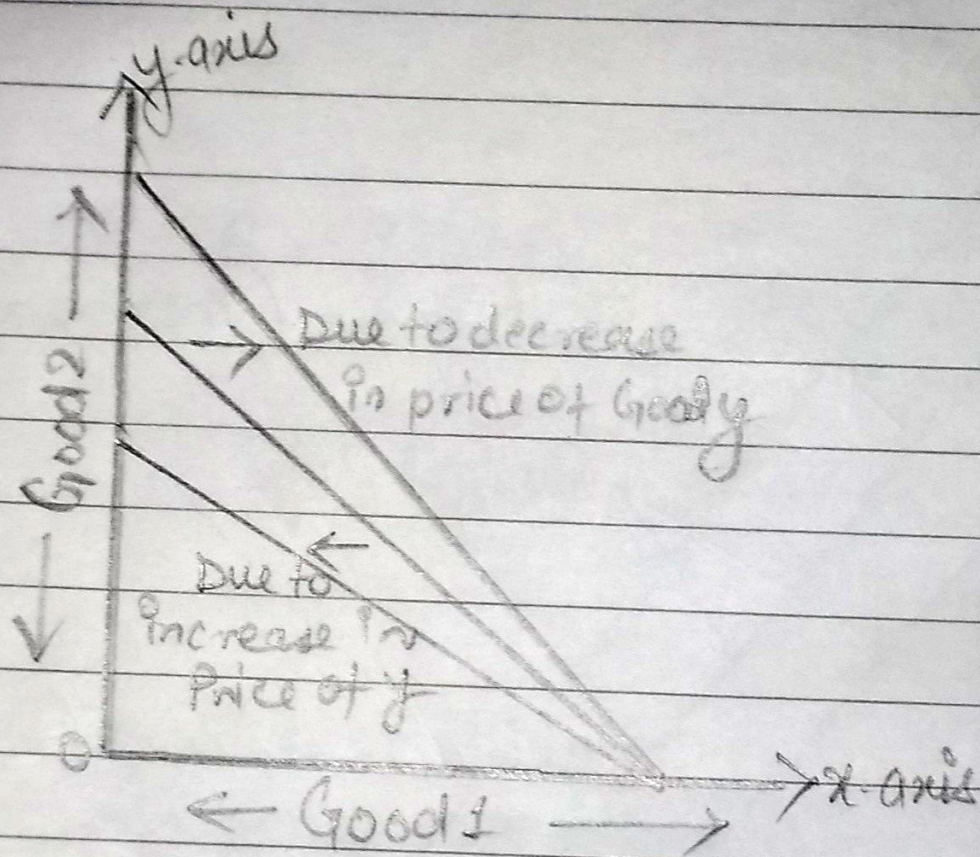 y-axis
Good 2
Due to decrease
in price of Good y
Due to
increase in
Price of y
O
x-axis
Good 1